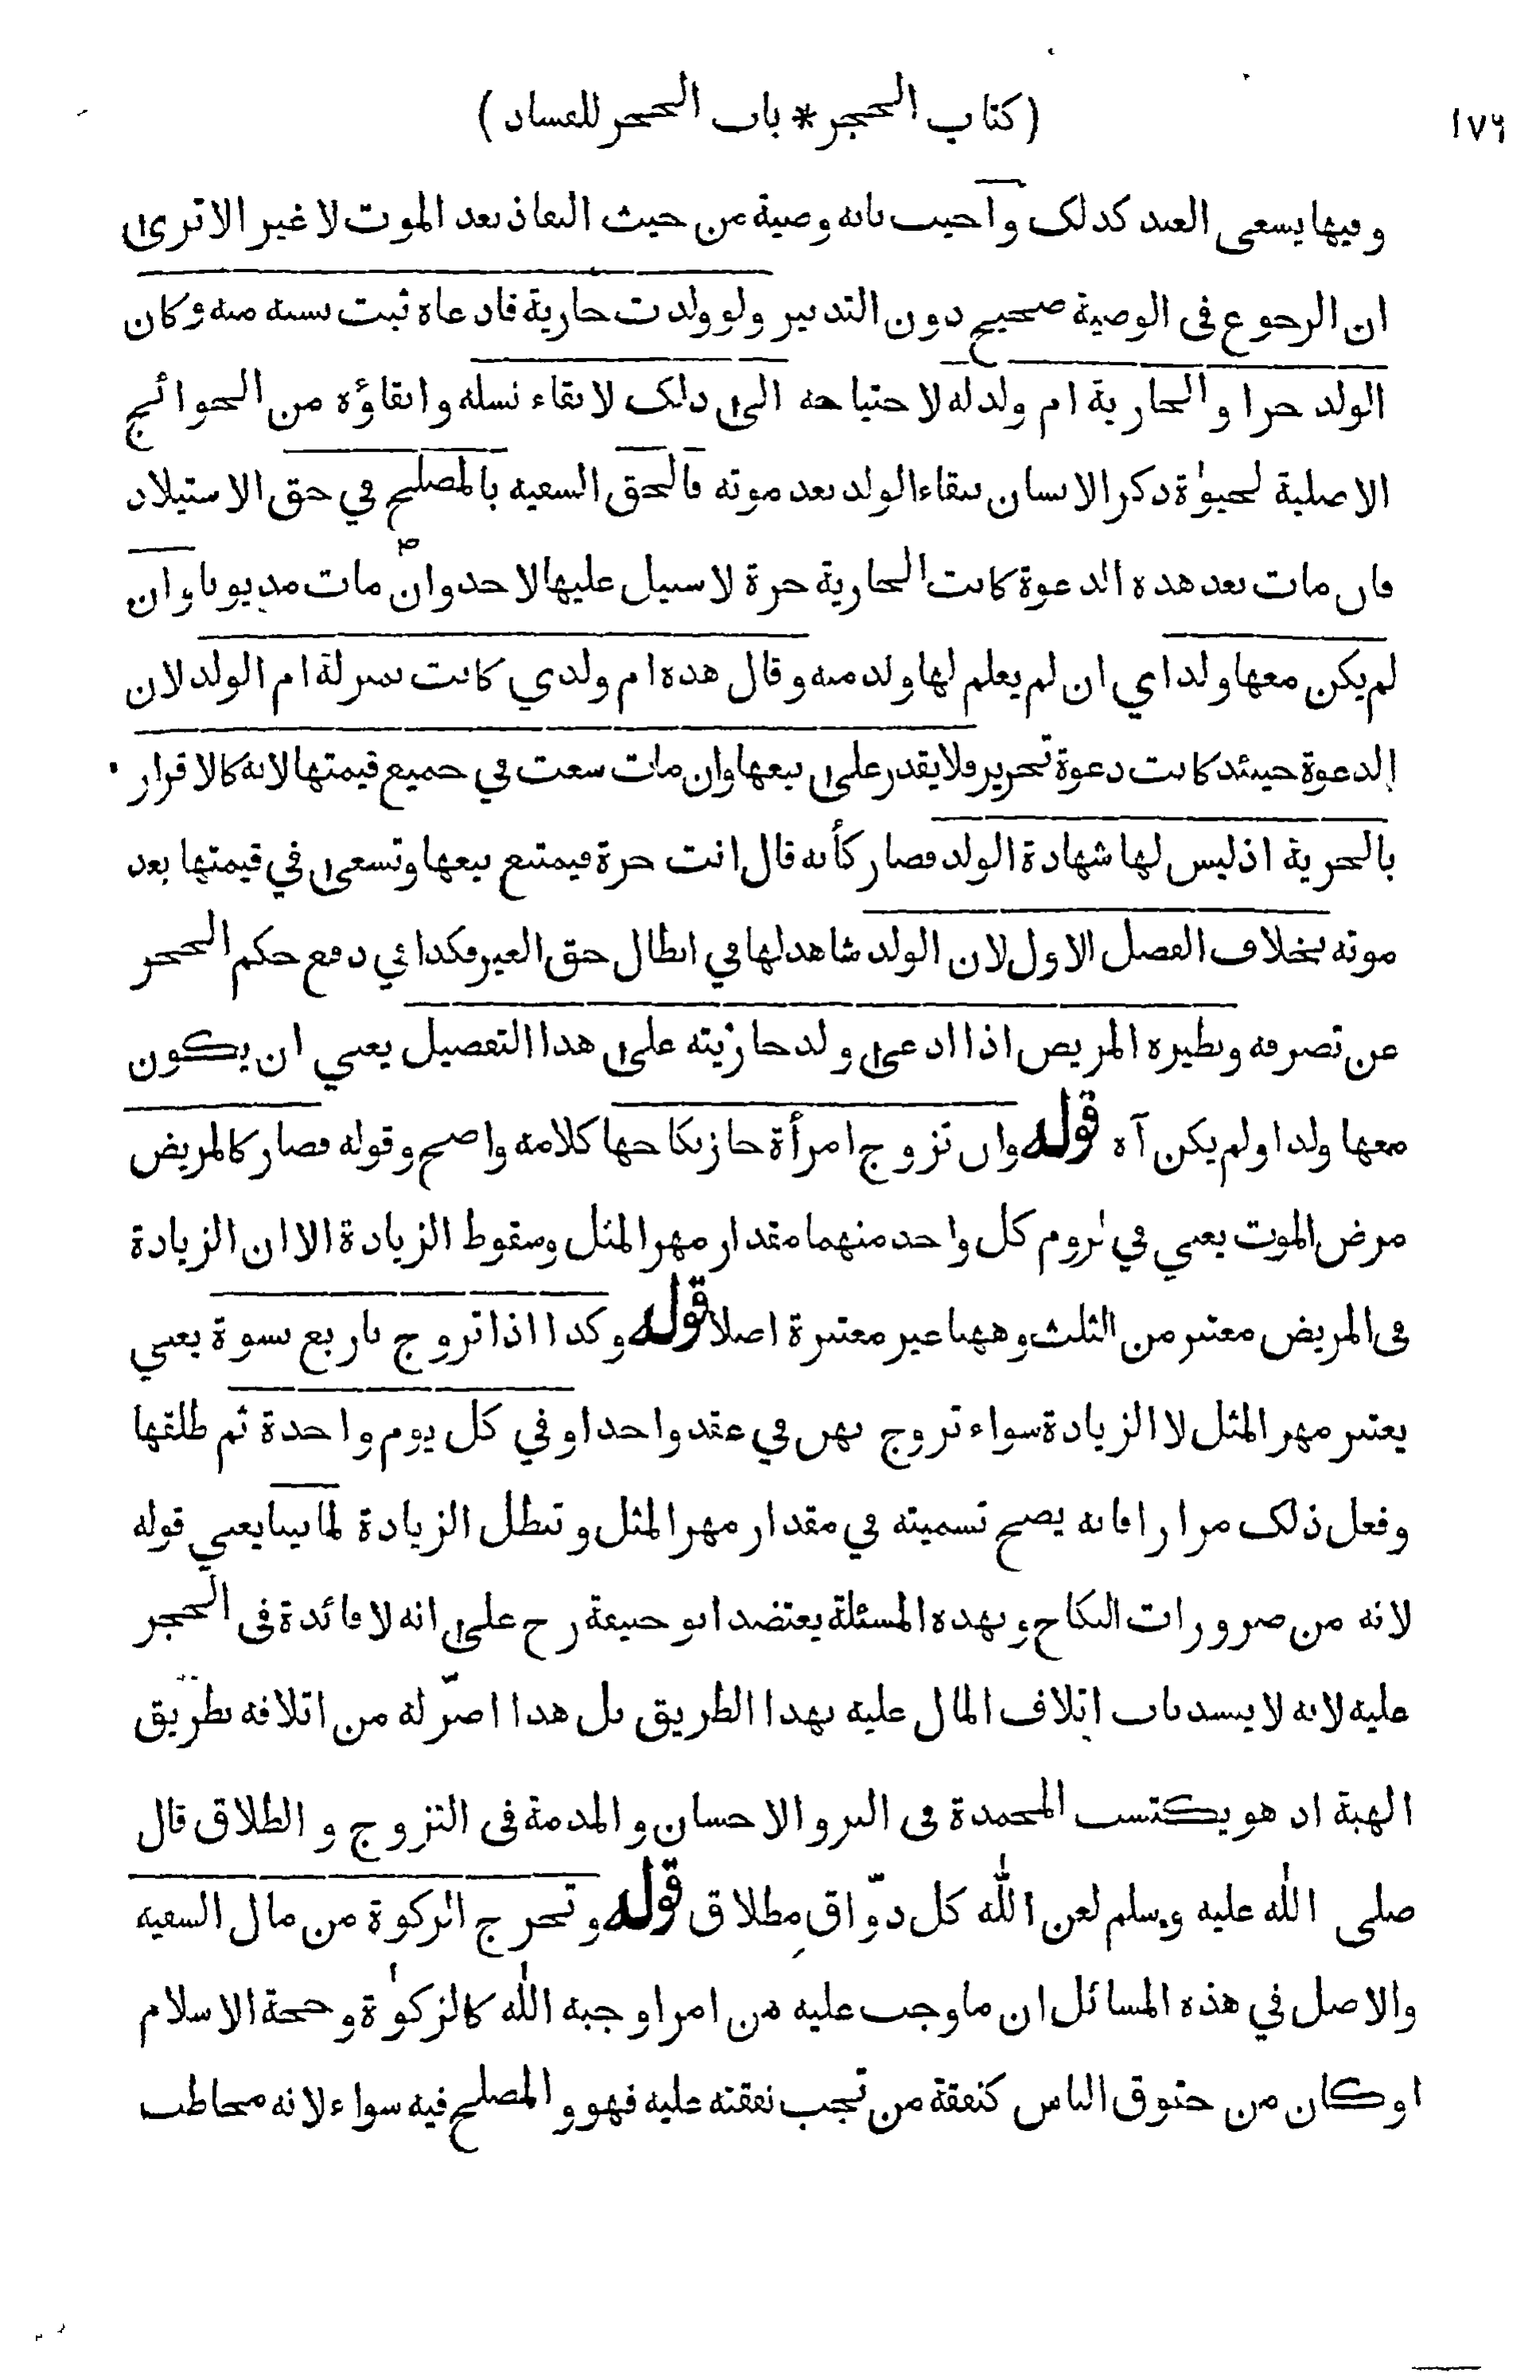 ١٧٦
(كتاب الحجر * باب الحجر للفساد)
وفيها يسعى العبد كذلك واجيب بانه وصية من حيث النفاذ بعد الموت لا غير الا ترى
ان الرجوع فى الوصية صحيح دون التدبير ولو ولدت جارية فادعاه ثبت نسبه منه وكان
الولد حرا والجارية ام ولد له لاحتياجه الى ذلك لابقاء نسله وابقاؤه من الحوائج
الاصلية لحيوٰة ذكر الانسان ببقاء الولد بعد موته فالحق السفيه بالمصلح في حق الاستيلاد
فان مات بعد هذه الدعوة كانت الجارية حرة لا سبيل عليها لاحد وان مات مديونا وان
لم يكن معها ولد اي ان لم يعلم لها ولد منه وقال هذه ام ولدي كانت بمنزلة ام الولد لان
الدعوة حينئذ كانت دعوة تحرير ولا يقدر على بيعها وان مات سعت في جميع قيمتها لانه كالاقرار
بالحرية اذ ليس لها شهادة الولد فصار كأنه قال انت حرة فيمتنع بيعها وتسعى في قيمتها بعد
موته بخلاف الفصل الاول لان الولد شاهد لها في ابطال حق الغير فكذا في دفع حكم الحجر
عن تصرفه ونظيره المريض اذا ادعى ولد جاريته على هذا التفصيل يعني ان يكون
معها ولد او لم يكن آه قوله وان تزوج امرأة جاز نكاحها كلامه واضح وقوله فصار كالمريض
مرض الموت يعني في لزوم كل واحد منهما مقدار مهر المثل وسقوط الزيادة الا ان الزيادة
فى المريض معتبر من الثلث وههنا غير معتبرة اصلا قوله وكذا اذا تزوج باربع نسوة يعني
يعتبر مهر المثل لا الزيادة سواء تزوج بهن في عقد واحد او في كل يوم واحدة ثم طلقها
وفعل ذلك مرارا فانه يصح تسميته في مقدار مهر المثل وتبطل الزيادة لما بينا يعني قوله
لانه من ضرورات النكاح وبهذه المسئلة يعتضد ابو حنيفة رح على انه لا فائدة فى الحجر
عليه لانه لا ينسد باب اتلاف المال عليه بهذا الطريق بل هذا اضرّ له من اتلافه بطريق
الهبة اذ هو يكتسب المحمدة فى البر والاحسان والمذمة فى التزوج والطلاق قال
صلى الله عليه وسلم لعن الله كل ذوّاق مطلاق قوله وتخرج الزكوة من مال السفيه
والاصل في هذه المسائل ان ما وجب عليه من امر اوجبه الله كالزكوٰة وحجة الاسلام
او كان من حقوق الناس كنفقة من تجب نفقته عليه فهو والمصلح فيه سواء لانه مخاطب